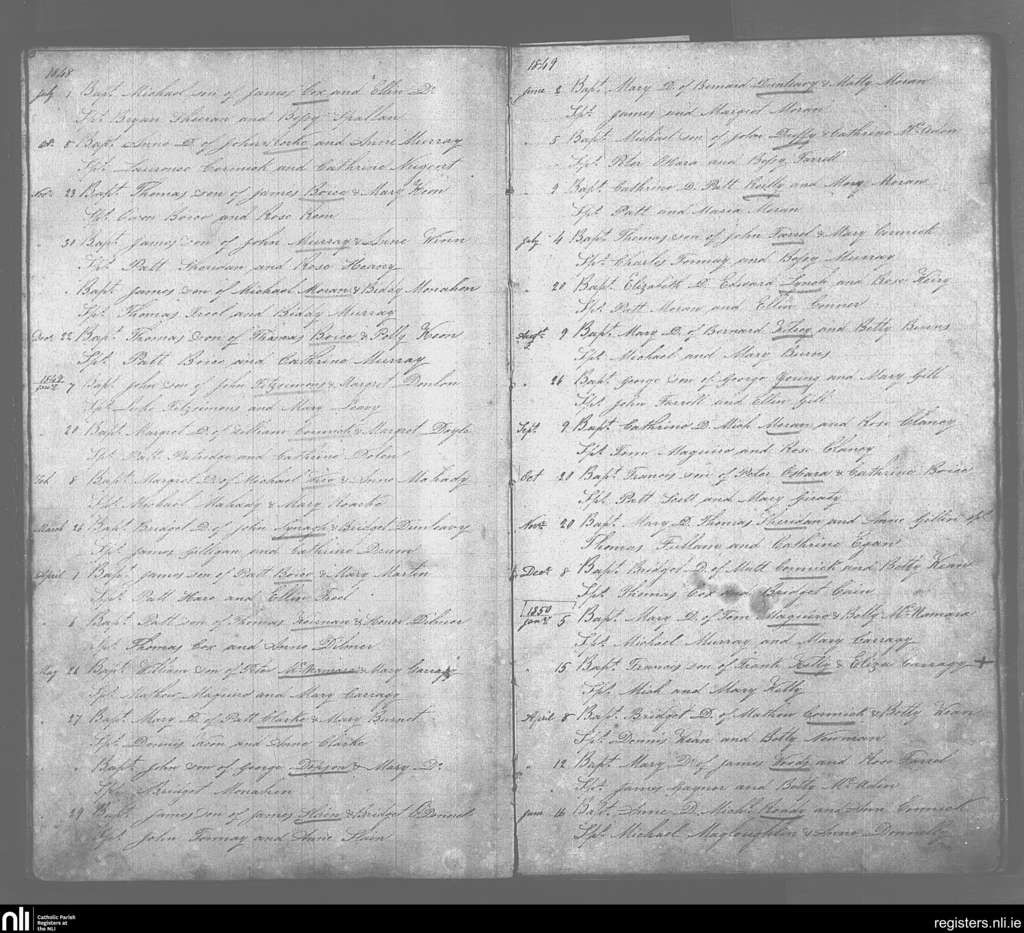 1848
July 1 Bapt. Michael son of James Cox and Ellen Do.
Spt. Bryan Sheeran and Bessy Scallan
8 Bapt. Anne D. of John and Anne Murray
Spt. Laurence Cormick and Cathrine Nugent
Nov. 23 Bapt. Thomas son of James Boice & Mary Keon
Spt. Owen Boice and Rose Keon
" 30 Bapt. James son of John Murray & Anne Winn
Spt. Patt Sheridan and Rose Heavy
" Bapt. James son of Michael Moran & Biddy Monahon
Spt. Thomas Treol and Biddy Murray
Decr. 22 Bapt. Thomas son of Thomas Boice & Polly Keon
Spt. Patt Boice and Cathrine Murray
1849
Jany. 7 Bapt. John son of John Fitzsimons & Margret Donlon
Spt. Luke Fitzsimons and Mary Leavy
" 20 Bapt. Margret D. of William Cormick & Margret Doyle
Spt. Patt and Cathrine Dolen
Feb 8 Bapt. Margret D. of Michael & Anne Mahady
Spt. Michael Mahady & Mary Roache
March 26 Bapt. Bridget D. of John & Bridget Dunleavy
Spt. James Gilligan and Cathrine
April 1 Bapt. James son of Patt Boice & Mary Martin
Spt. Patt Hare and Ellen Treol
" 6 Bapt. Patt son of Thomas & Honor Dilmer
Spt. Thomas Cox and Anne Dilmer
May 26 Bapt. William son of Peter McNamara & Mary Carragy
Spt. Mathew Maguire and Mary Carragy
" 27 Bapt. Mary D. of Patt Clarke & Mary Burnet
Spt. Dennis Keon and Anne Clarke
" Bapt. John son of George & Mary Do.
Spt. Bridget Monahen
" 29 Bapt. James son of James Slain & Bridget O'Donnel
Spt. John Tormay and Anne Slain
1849
June 2 Bapt. Mary D. of Bernard Dunleavy & Matty Moran
Spt. James and Margret Moran
" 5 Bapt. Michael son of John Duffy & Cathrine
Spt. Peter OHara and Bessy Farrell
" 9 Bapt. Cathrine D. Patt Reilly and Mary Moran
Spt. Patt and Maria Moran
July 4 Bapt. Thomas son of John Farrel & Mary Cormick
Spt. Charles Tormay and Bessy Murray
" 20 Bapt. Elizabeth D. Edward Lynch and Rose Keiry
Spt. Patt Moran and Ellen Connor
Augt. 9 Bapt. Mary D. of Bernard and Betty Burns
Spt. Michael and Mary Burns
" 26 Bapt. George son of George Young and Mary Gill
Spt. John Farrell and Ellen Gill
Sept. 9 Bapt. Cathrine D. Mich Moran and Rose Clancy
Spt. Tom Maguire and Rose Clancy
Oct 20 Bapt. Francis son of Peter OHara & Cathrine Boice
Spt. Patt Scott and Mary Geraty
Novr. 20 Bapt. Mary D. Thomas Sheridan and Anne Gillin Spt.
Thomas Fullam and Cathrine Egan
Decr. 8 Bapt. Bridget D. of Matt Cormick and Betty Keane
Spt. Thomas Cox and Bridget Cain
1850
Jany. 5 Bapt. Mary D. of Tom Maguire & Betty McNamara
Spt. Michael Murray and Mary Carragy
" 15 Bapt. Francis son of Frank Kelly & Eliza Carragy +
Spt. Mich and Mary Kelly
April 8 Bapt. Bridget D. of Mathew Cormick & Betty Kean
Spt. Dennis Kean and Betty Newman
" 12 Bapt. Mary D. of James Woods and Rose Farrel
Spt. James Gaynor and Betty McAdin
June 16 Bapt. Anne D. Michl. Ready and Ann Cormick
Spt. Michael Magloughlin & Anne Donnelly
nli
Catholic Parish
Registers at
the NLI
registers.nli.ie